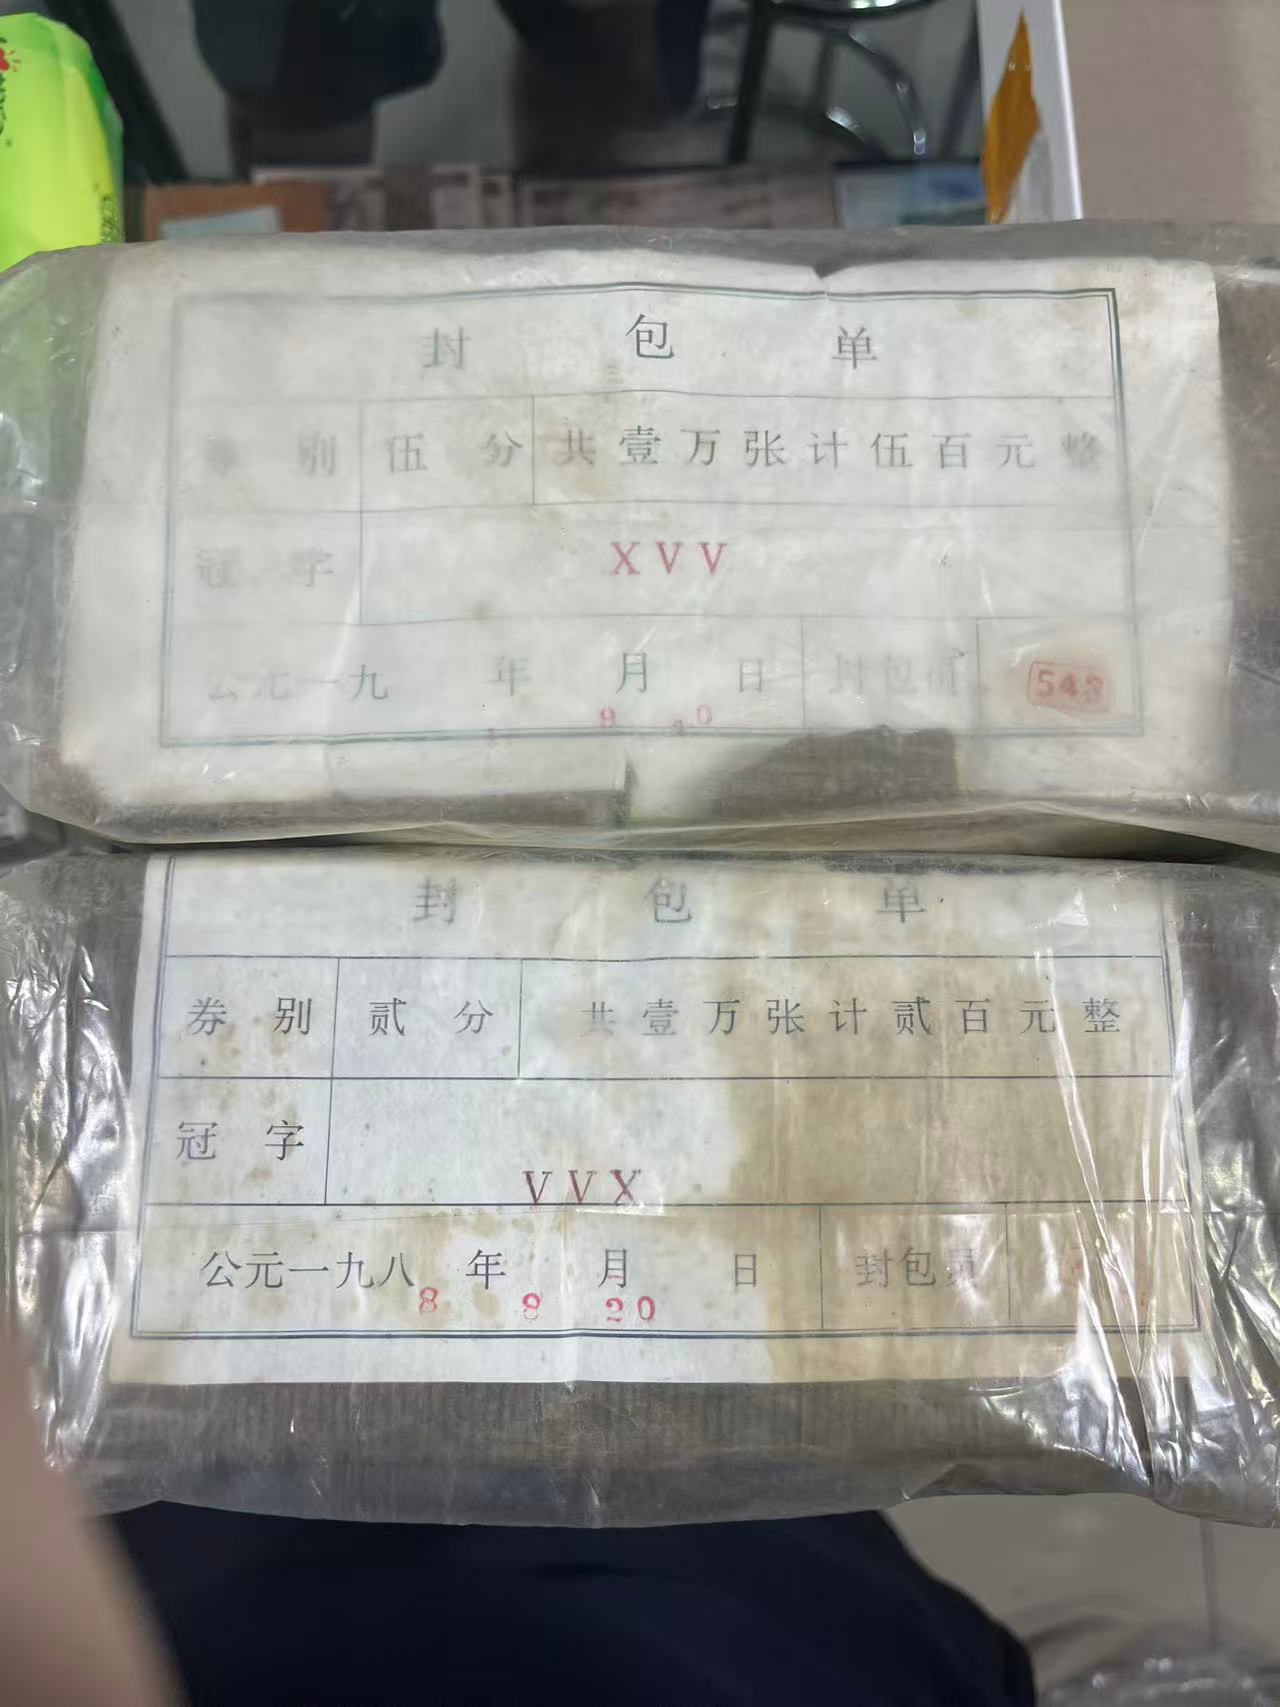 封 包 单
券 别 伍 分 共壹万张计伍百元整
冠 字 XVV
公元一九 年 月 日 封包员 543
9 20
封 包 单
券 别 贰 分 共壹万张计贰百元整
冠 字 VVX
公元一九八 年 月 日 封包员
8 8 20